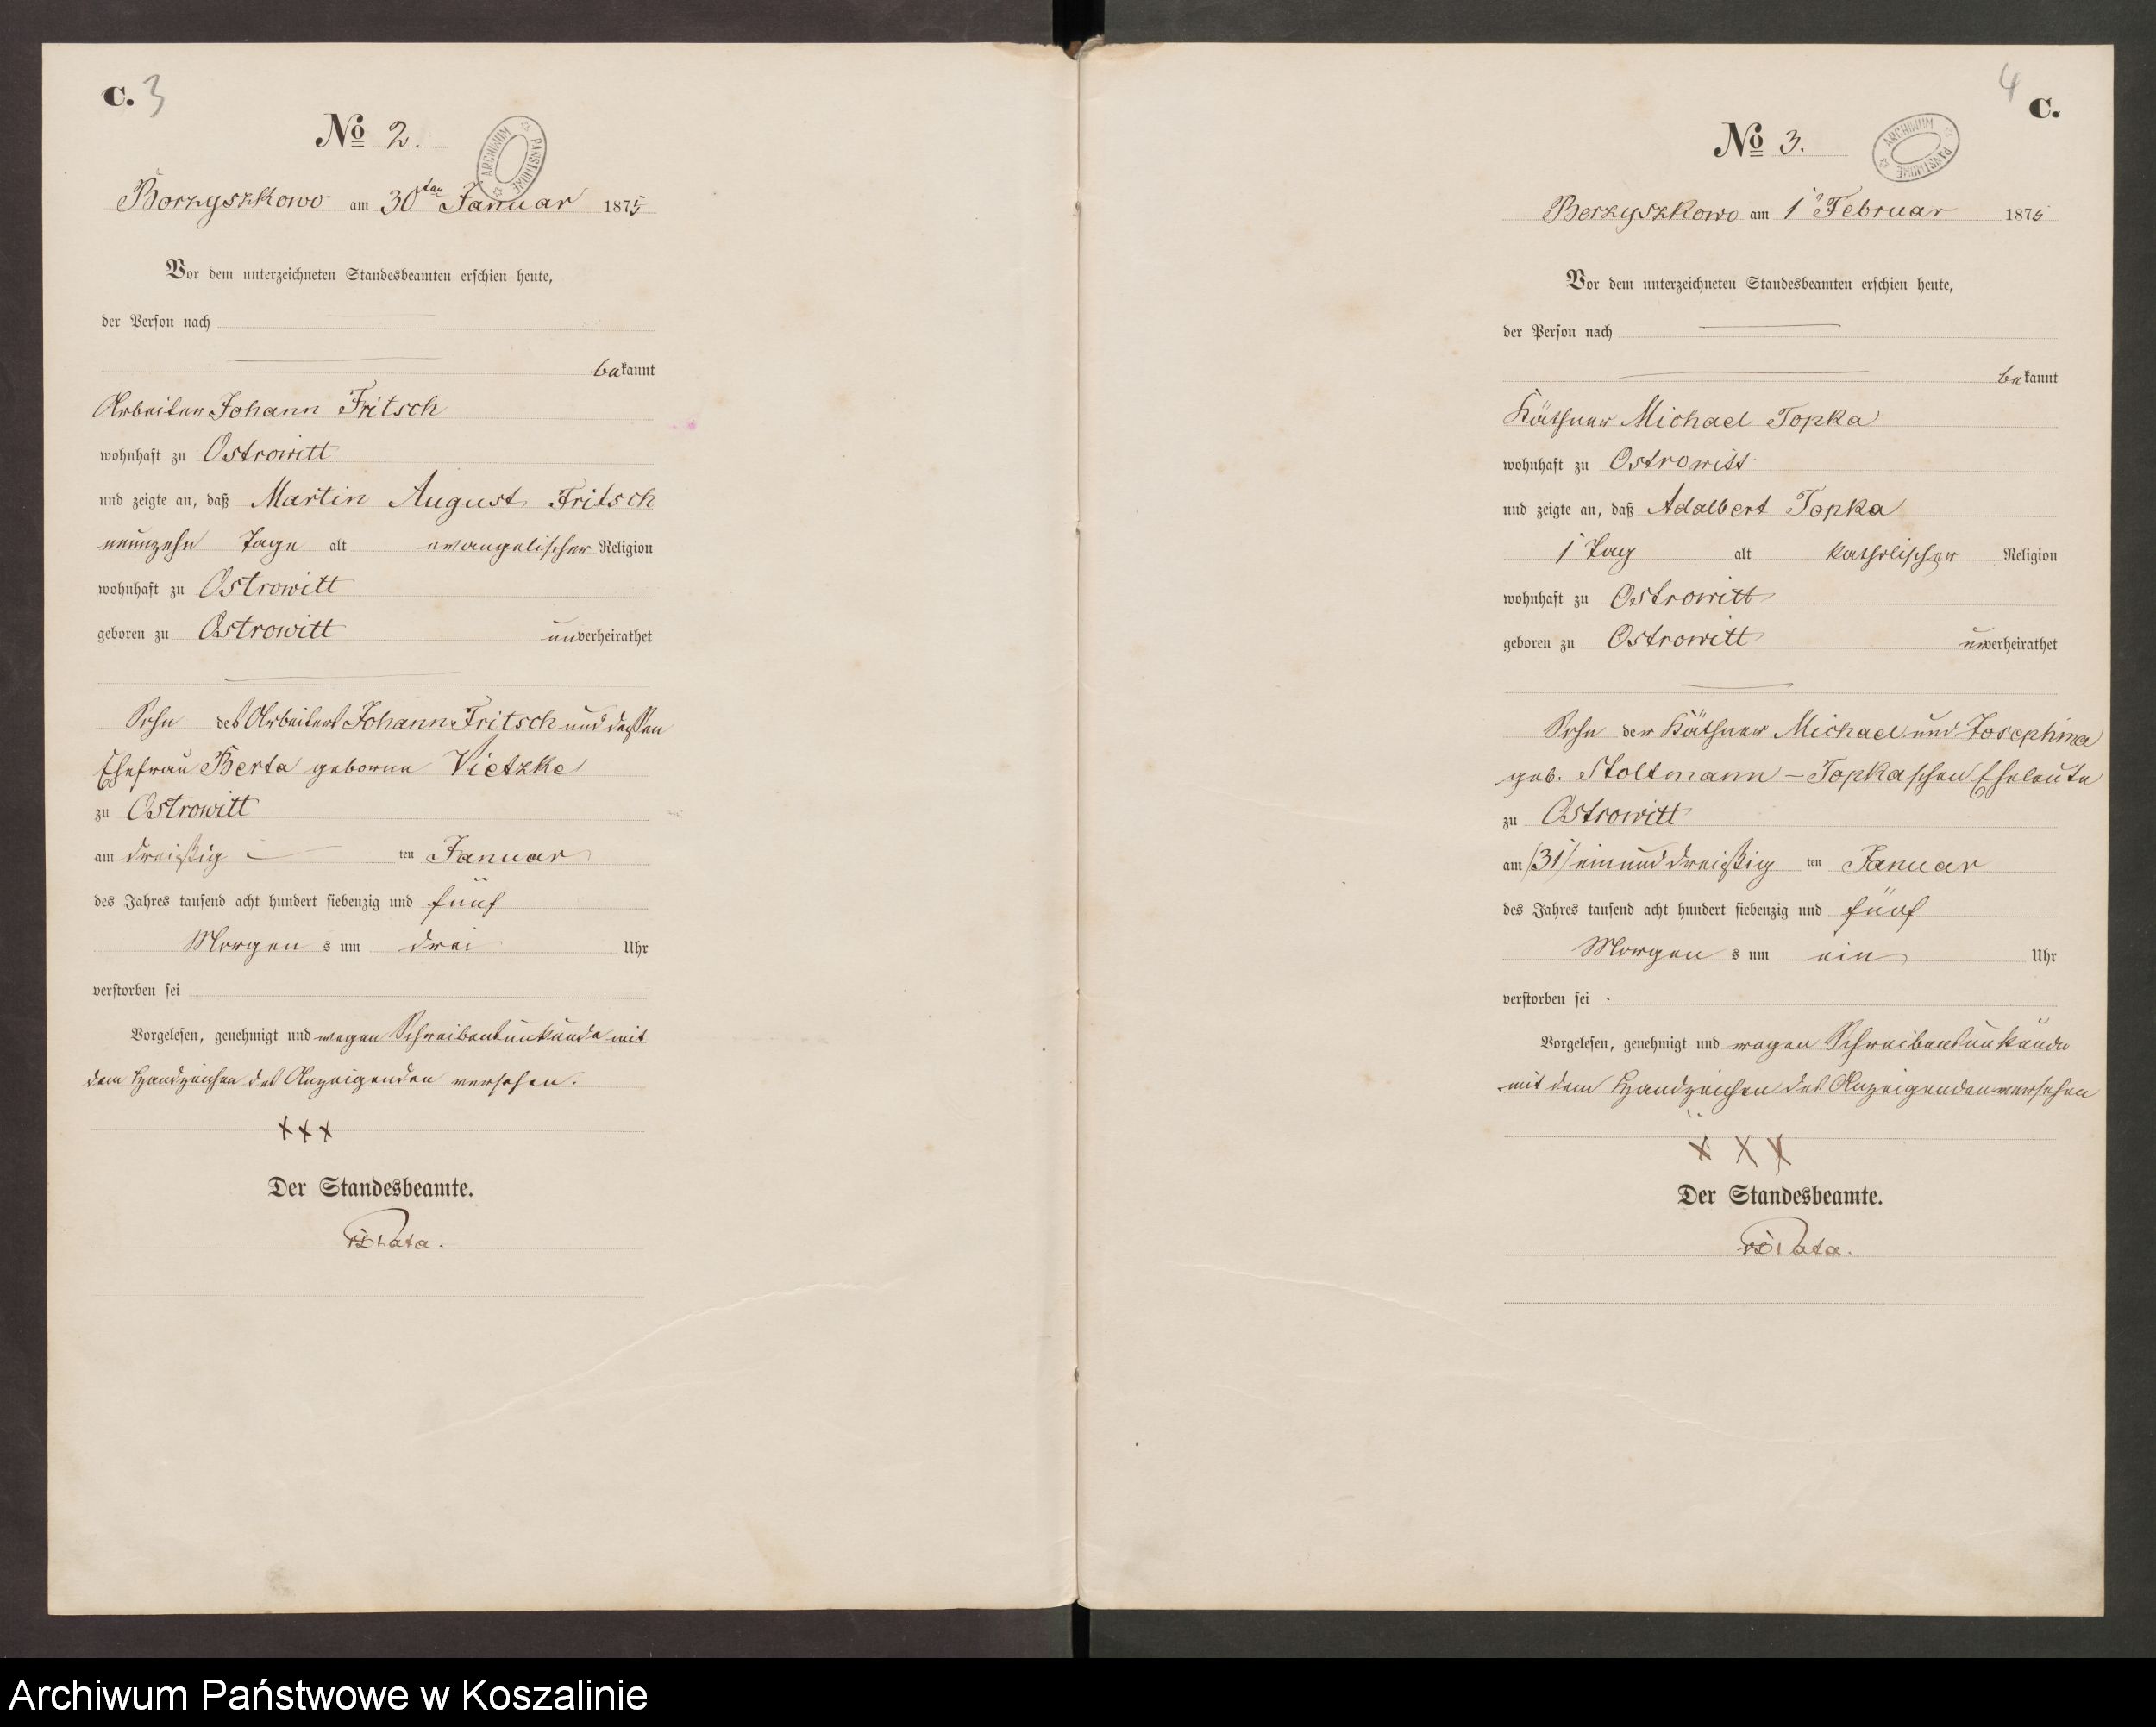 C. 3
No 2.
ARCHIWUM PAŃSTWOWE
Borzyszkowo am 30ten Januar 1875
Vor dem unterzeichneten Standesbeamten erschien heute,
der Person nach
bekannt
Arbeiter Johann Fritsch
wohnhaft zu Ostrowitt
und zeigte an, daß Martin August Fritsch
neunzehn Tage alt evangelischer Religion
wohnhaft zu Ostrowitt
geboren zu Ostrowitt unverheirathet
Sohn des Arbeiters Johann Fritsch und dessen
Ehefrau Berta geborne Vietzke
zu Ostrowitt
am dreißig ten Januar
des Jahres tausend acht hundert siebenzig und fünf
Morgen s um drei Uhr
verstorben sei
Vorgelesen, genehmigt und wegen Schreibensunkunde mit
dem Handzeichen des Anzeigenden versehen.
+++
Der Standesbeamte.
4 C.
No 3.
ARCHIWUM PAŃSTWOWE
Borzyszkowo am 1 Februar 1875
Vor dem unterzeichneten Standesbeamten erschien heute,
der Person nach
bekannt
Käthner Michael Topka
wohnhaft zu Ostrowitt
und zeigte an, daß Adalbert Topka
1 Tag alt katholischer Religion
wohnhaft zu Ostrowitt
geboren zu Ostrowitt unverheirathet
Sohn der Käthner Michael und Josephina
geb. Stoltmann – Topkaschen Eheleute
zu Ostrowitt
am /31/ einunddreißig ten Januar
des Jahres tausend acht hundert siebenzig und fünf
Morgen s um ein Uhr
verstorben sei .
Vorgelesen, genehmigt und wegen Schreibensunkunde
mit dem Handzeichen des Anzeigenden versehen
+++
Der Standesbeamte.
Archiwum Państwowe w Koszalinie